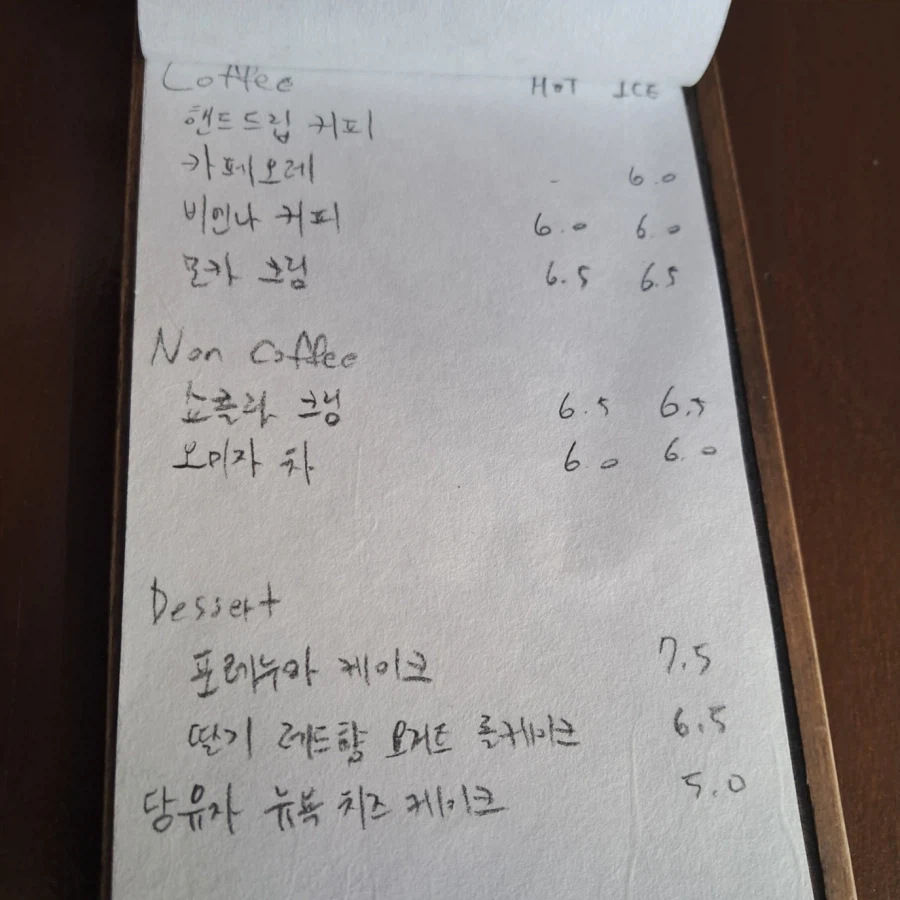 Coffee HOT ICE
핸드드립 커피
카페오레 - 6.0
비엔나 커피 6.0 6.0
모카 크림 6.5 6.5
Non Coffee
쇼콜라 크림 6.5 6.5
오미자 차 6.0 6.0
Dessert
포레누아 케이크 7.5
딸기 레드향 요거트 롤케이크 6.5
당유자 뉴욕 치즈 케이크 5.0